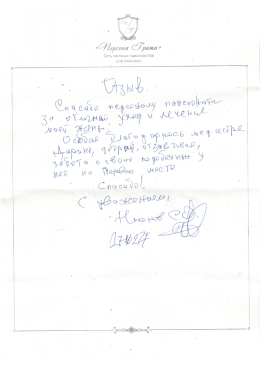 «Персона Грата»
Сеть частных пансионатов
для пожилых
Отзыв.
Спасибо персоналу пансионата
за отличный уход и лечение
моей жены.
Особая благодарность медсестре
добрая, отзывчивая,
забота о своих подопечных у
неё на первом месте
Спасибо!
С уважением,